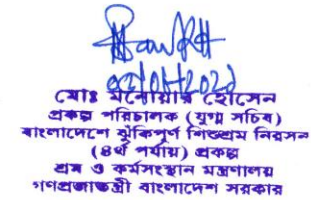 মোঃ মনোয়ার হোসেন
প্রকল্প পরিচালক (যুগ্ম সচিব)
বাংলাদেশে ঝুঁকিপূর্ণ শিশুশ্রম নিরসন
(৪র্থ পর্যায়) প্রকল্প
শ্রম ও কর্মসংস্থান মন্ত্রণালয়
গণপ্রজাতন্ত্রী বাংলাদেশ সরকার